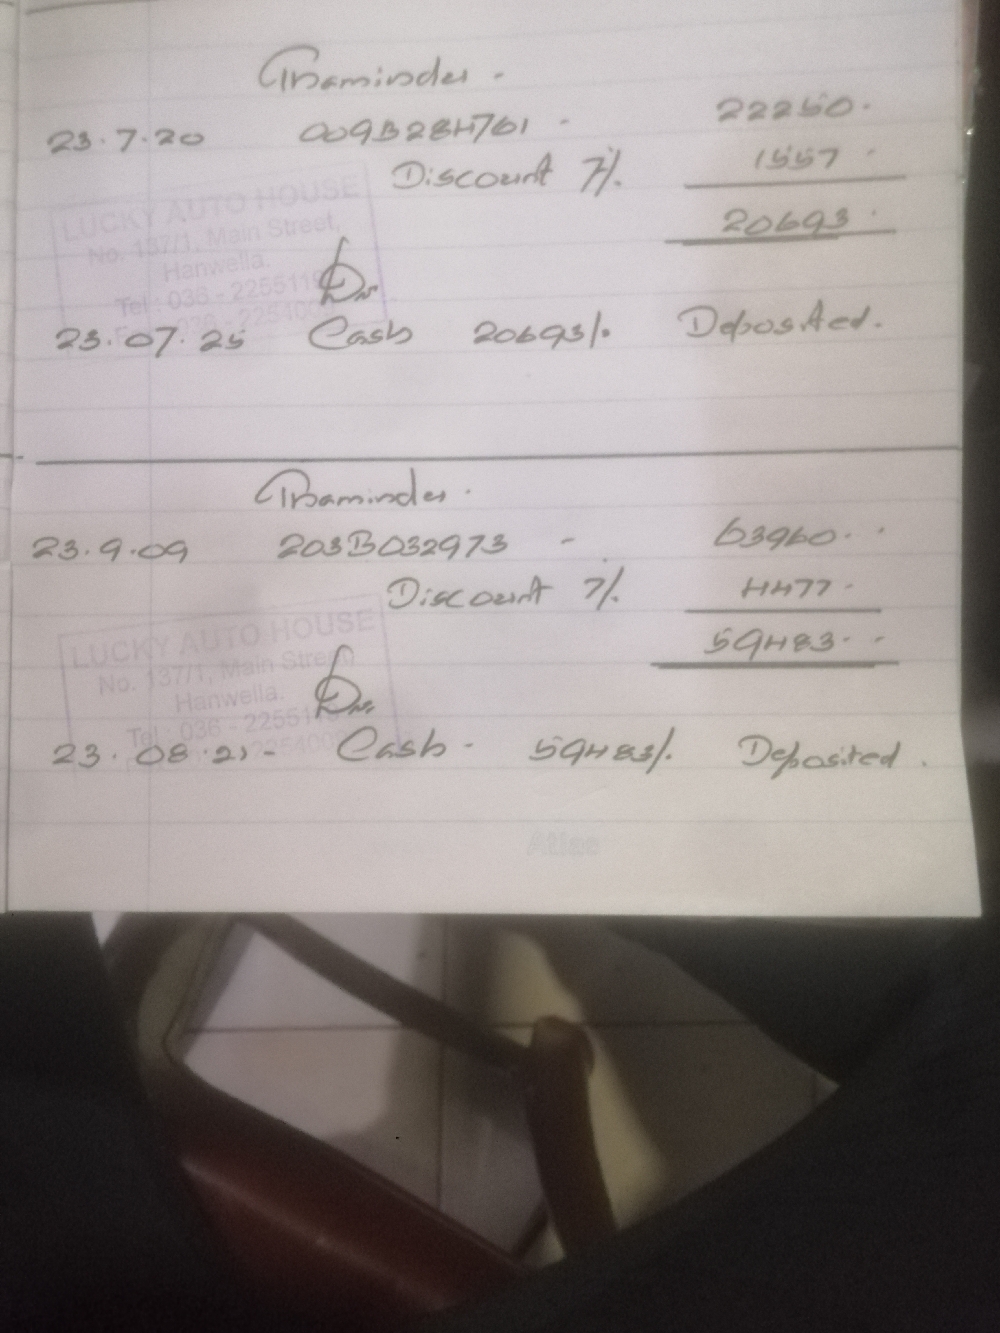 Tharminder.
23.7.20 009B28H761 - 22250.
Discount 7%. 1557.
20693.
LUCKY AUTO HOUSE
No. 137/1, Main Street,
Hanwella.
Tel : 036 - 22551
23.07.25 Cash 20693/. Deposited.
Tharminder.
23.9.09 203B032973 - 63960..
Discount 7%. 4477.
59483..
LUCKY AUTO HOUSE
No. 137/1, Main Street
Hanwella.
Tel : 036 - 22551
23.08.21- Cash - 59483/. Deposited.
Atlas